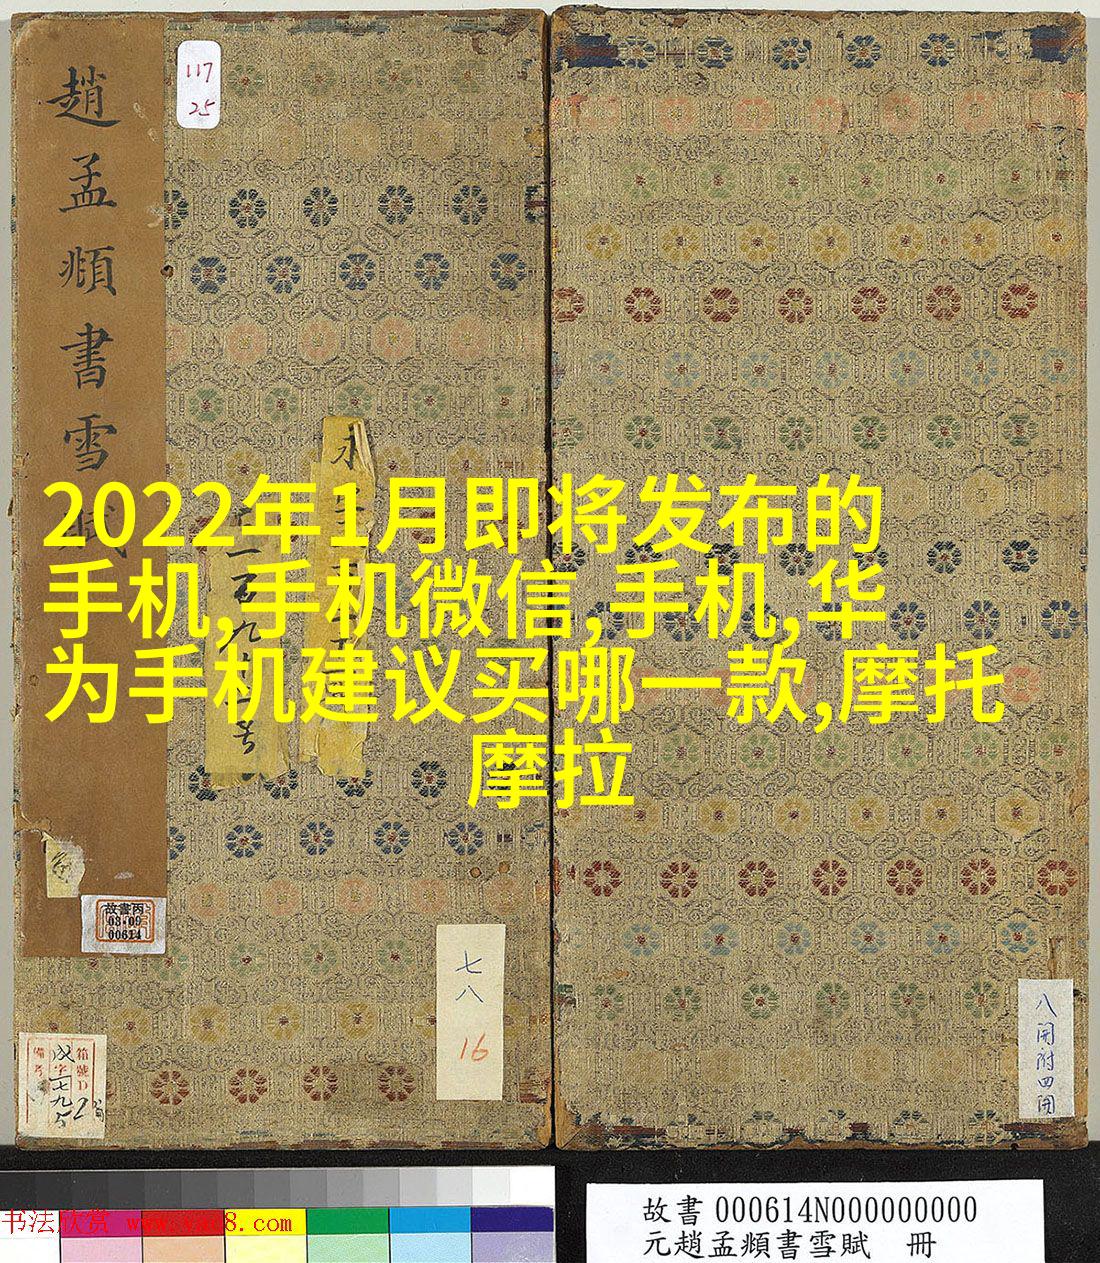 趙孟頫書雪賦
117
25
2022年1月即将发布的
手机,手机微信,手机,华
为手机建议买哪一款,摩托
摩拉
故書丙
08-09
00614
七八
16
八開附四開
書法欣赏 www.yac8.com
故書 000614N000000000
元趙孟頫書雪賦 冊